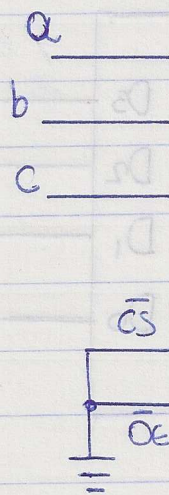 a
b
c
C̅S̅
O̅E̅